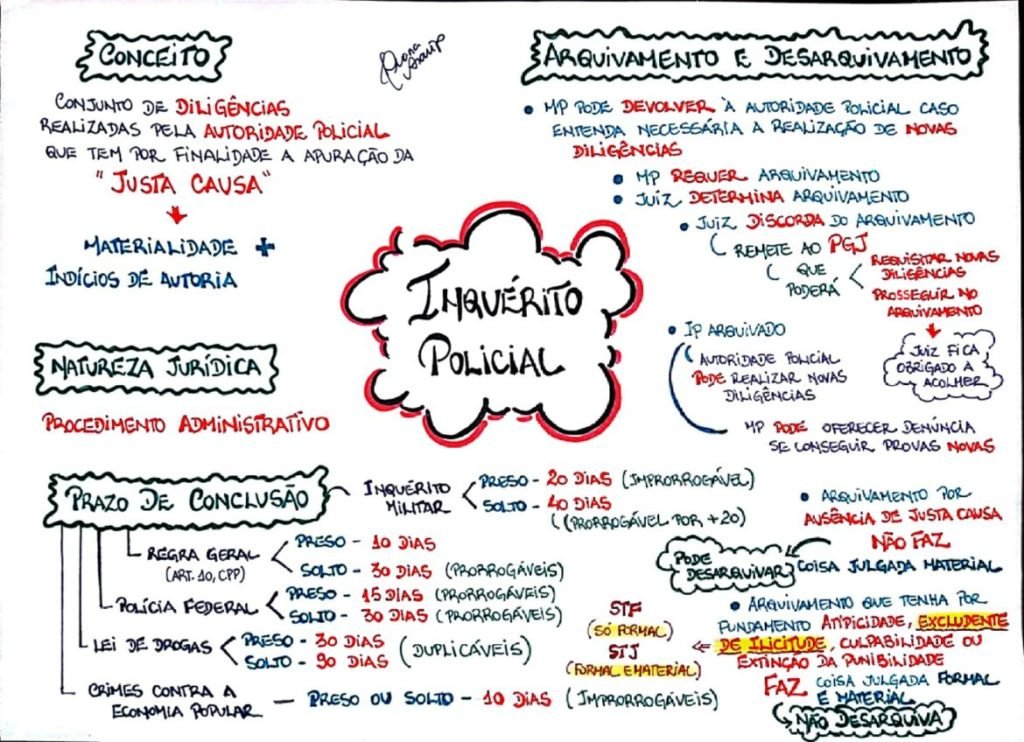 CONCEITO
CONJUNTO DE DILIGÊNCIAS
REALIZADAS PELA AUTORIDADE POLICIAL
QUE TEM POR FINALIDADE A APURAÇÃO DA
"JUSTA CAUSA"
MATERIALIDADE +
INDÍCIOS DE AUTORIA
NATUREZA JURÍDICA
PROCEDIMENTO ADMINISTRATIVO
INQUÉRITO
POLICIAL
ARQUIVAMENTO E DESARQUIVAMENTO
• MP PODE DEVOLVER À AUTORIDADE POLICIAL CASO
ENTENDA NECESSÁRIA A REALIZAÇÃO DE NOVAS
DILIGÊNCIAS
• MP REQUER ARQUIVAMENTO
• JUIZ DETERMINA ARQUIVAMENTO
• JUIZ DISCORDA DO ARQUIVAMENTO
REMETE AO PGJ
QUE
PODERÁ
REQUISITAR NOVAS
DILIGÊNCIAS
PROSSEGUIR NO
ARQUIVAMENTO
JUIZ FICA
OBRIGADO A
ACOLHER
• IP ARQUIVADO
AUTORIDADE POLICIAL
PODE REALIZAR NOVAS
DILIGÊNCIAS
MP PODE OFERECER DENÚNCIA
SE CONSEGUIR PROVAS NOVAS
PRAZO DE CONCLUSÃO
INQUÉRITO
MILITAR
PRESO - 20 DIAS (IMPRORROGÁVEL)
SOLTO - 40 DIAS
(PRORROGÁVEL POR +20)
REGRA GERAL
(ART. 10, CPP)
PRESO - 10 DIAS
SOLTO - 30 DIAS (PRORROGÁVEIS)
POLÍCIA FEDERAL
PRESO - 15 DIAS (PRORROGÁVEIS)
SOLTO - 30 DIAS (PRORROGÁVEIS)
LEI DE DROGAS
PRESO - 30 DIAS
SOLTO - 90 DIAS
(DUPLICÁVEIS)
CRIMES CONTRA A
ECONOMIA POPULAR
PRESO OU SOLTO - 10 DIAS (IMPRORROGÁVEIS)
• ARQUIVAMENTO POR
AUSÊNCIA DE JUSTA CAUSA
NÃO FAZ
COISA JULGADA MATERIAL
PODE
DESARQUIVAR
• ARQUIVAMENTO QUE TENHA POR
FUNDAMENTO ATIPICIDADE, EXCLUDENTE
DE ILICITUDE, CULPABILIDADE OU
EXTINÇÃO DA PUNIBILIDADE
FAZ COISA JULGADA FORMAL
E MATERIAL
NÃO DESARQUIVA
STF
(SÓ FORMAL)
STJ
(FORMAL E MATERIAL)